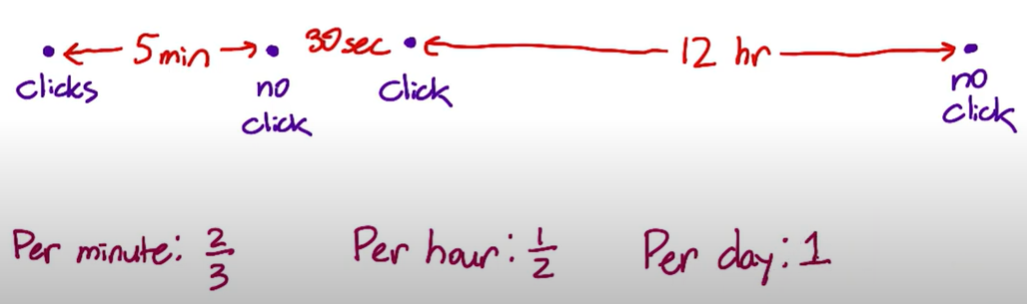 5 min 30 sec 12 hr
clicks no click no
click click
Per minute: 2/3 Per hour: 1/2 Per day: 1